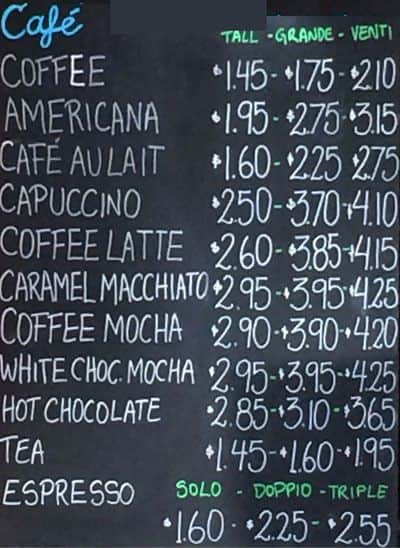 Café
TALL - GRANDE - VENTI
COFFEE $1.45 - $1.75 - $2.10
AMERICANA $1.95 - $2.75 - $3.15
CAFÉ AU LAIT $1.60 - $2.25 - $2.75
CAPUCCINO $2.50 - $3.70 - $4.10
COFFEE LATTE $2.60 - $3.85 - $4.15
CARAMEL MACCHIATO $2.95 - $3.95 - $4.25
COFFEE MOCHA $2.90 - $3.90 - $4.20
WHITE CHOC. MOCHA $2.95 - $3.95 - $4.25
HOT CHOCOLATE $2.85 - $3.10 - $3.65
TEA $1.45 - $1.60 - $1.95
ESPRESSO SOLO - DOPPIO - TRIPLE
$1.60 - $2.25 - $2.55